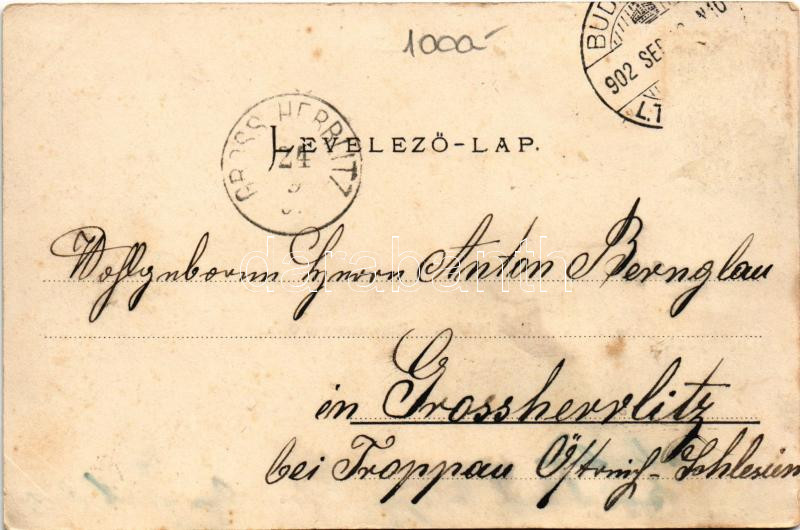 1000-
BUD
902 SEP
L.T
GROSS HERRLITZ
24
9
LEVELEZŐ-LAP.
darabanth
Wohlgeborenen Herrn Anton Bernglau
in Grossherrlitz
bei Troppau Östreich-Schlesien